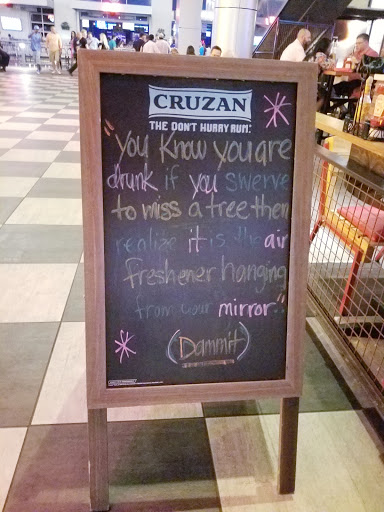 CRUZAN
THE DON'T HURRY RUM.
"You know you are
drunk if you swerve
to miss a tree then
realize it is the air
freshener hanging
from your mirror."
(Dammit)